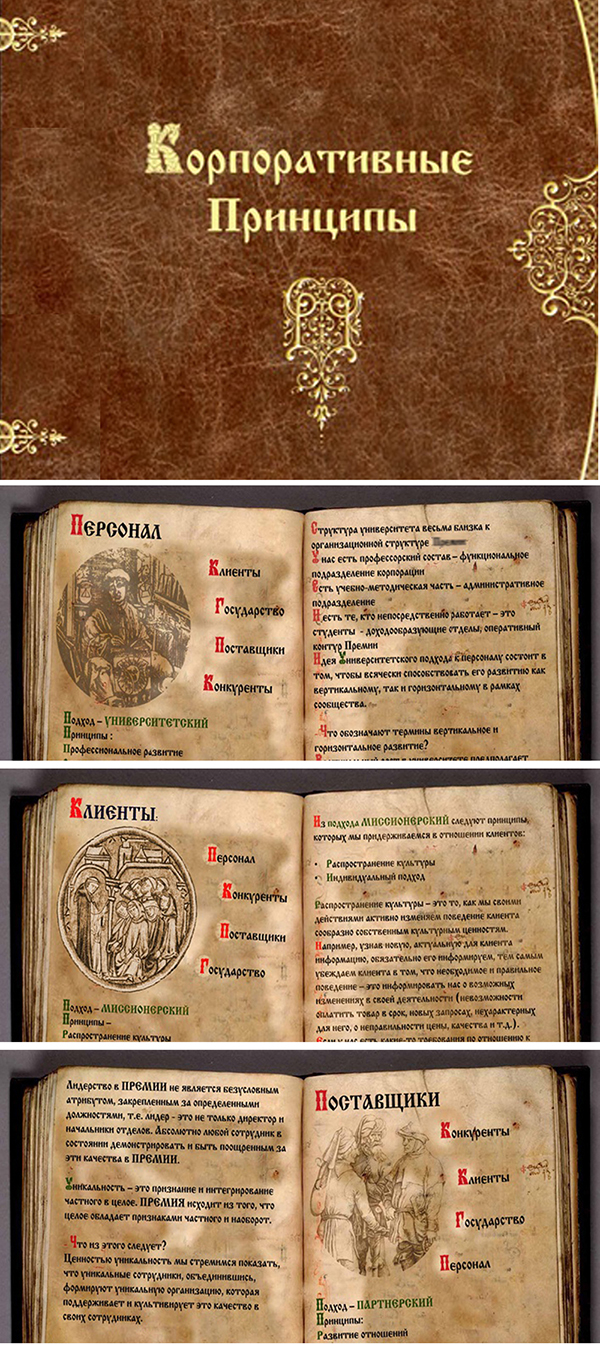 Корпоративные
Принципы
Персонал
Клиенты
Государство
Поставщики
Конкуренты
Подход – УНИВЕРСИТЕТСКИЙ
Принципы :
Профессиональное развитие
Структура университета весьма близка к
организационной структуре
У нас есть профессорский состав – функциональное
подразделение корпорации
Есть учебно-методическая часть – административное
подразделение
И есть те, кто непосредственно работает – это
студенты - доходообразующие отделы, оперативный
контур Премии
Идея Университетского подхода к персоналу состоит в
том, чтобы всячески способствовать его развитию как
вертикальному, так и горизонтальному в рамках
сообщества.
Что обозначают термины вертикальное и
горизонтальное развитие?
Клиенты:
Персонал
Конкуренты
Поставщики
Государство
Подход – МИССИОНЕРСКИЙ
Принципы –
Распространение культуры
Из подхода МИССИОНЕРСКИЙ следуют принципы,
которых мы придерживаемся в отношении клиентов:
• Распространение культуры
• Индивидуальный подход
Распространение культуры – это то, как мы своими
действиями активно изменяем поведение клиента
сообразно собственным культурным ценностям.
Например, узнав новую, актуальную для клиента
информацию, обязательно его информируем, тем самым
убеждаем клиента в том, что необходимое и правильное
поведение – это информировать нас о возможных
изменениях в своей деятельности (невозможности
оплатить товар в срок, новых запросах, нехарактерных
для него, о неправильности цены, качества и т.д.).
Если у нас есть какие-то требования по отношению к
Лидерство в ПРЕМИИ не является безусловным
атрибутом, закрепленным за определенными
должностями, т.е. лидер - это не только директор и
начальники отделов. Абсолютно любой сотрудник в
состоянии демонстрировать и быть поощренным за
эти качества в ПРЕМИИ.
Уникальность – это признание и интегрирование
частного в целое. ПРЕМИЯ исходит из того, что
целое обладает признаками частного и наоборот.
Что из этого следует?
Ценностью уникальность мы стремимся показать,
что уникальные сотрудники, объединившись,
формируют уникальную организацию, которая
поддерживает и культивирует это качество в
своих сотрудниках.
Поставщики
Конкуренты
Клиенты
Государство
Персонал
Подход – ПАРТНЕРСКИЙ
Принципы:
Развитие отношений